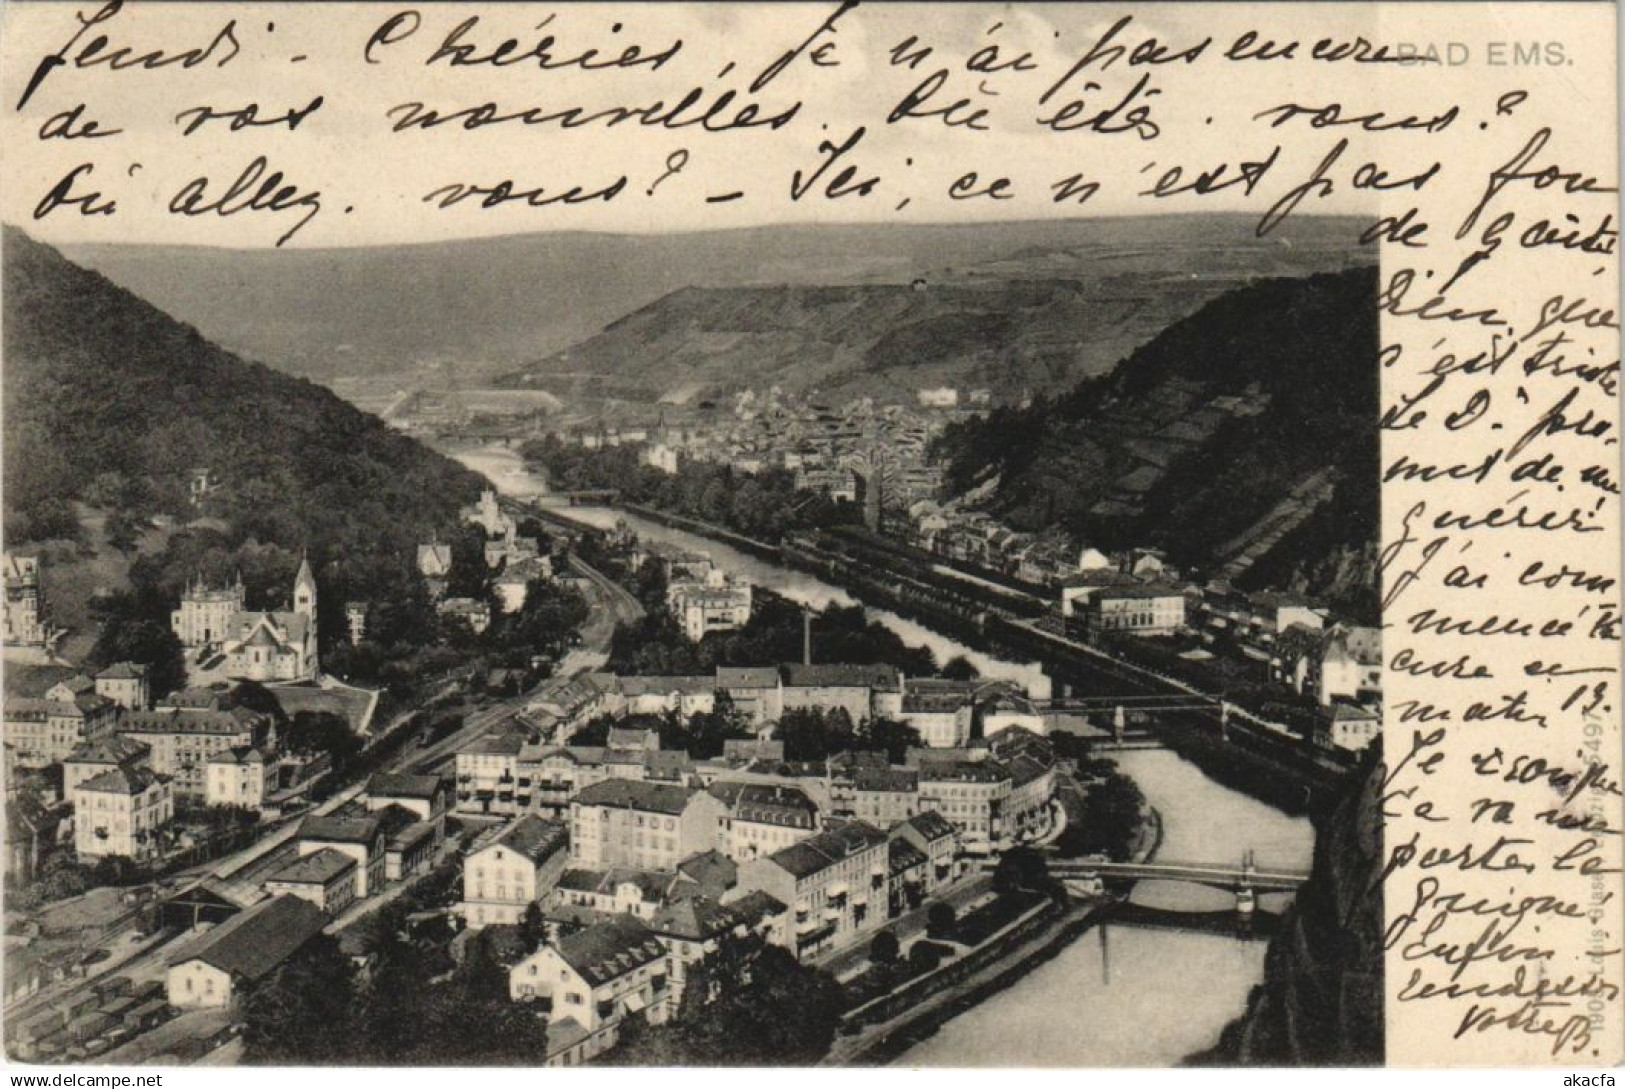 BAD EMS.
Jeudi - Chéries, Je n'ai pas encore
de vos nouvelles. Où êtes-vous?
Où allez-vous? - Ici, ce n'est pas fou
de gaîté
Dieu, que
c'est triste
Le Dr. pro-
met de me
guérir
J'ai com
mencé la
cure ce
matin 13.
Je
Ça va me
porter la
guigne.
Enfin
Tendresses
Votre B.
akacfa
akacfa